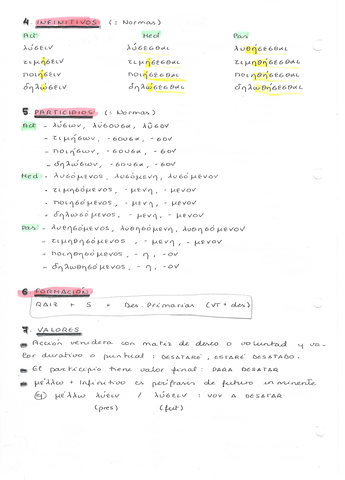 4. INFINITIVOS (: Normas)
Act Med Pas
λύσειν λύσεσθαι λυθήσεσθαι
τιμήσειν τιμήσεσθαι τιμηθήσεσθαι
ποιήσειν ποιήσεσθαι ποιηθήσεσθαι
δηλώσειν δηλώσεσθαι δηλωθήσεσθαι
5. PARTICIPIOS (: Normas)
Act - λύσων, λύσουσα, λῦσον
- τιμήσων, -σουσα, -σον
- ποιήσων, -σουσα, -σον
- δηλώσων, -σουσα, -σον
Med - λυσόμενος, λυσόμενη, λυσόμενον
- τιμησόμενος, -μενη, -μενον
- ποιησόμενος, -μενη, -μενον
- δηλωσόμενος, -μενη, -μενον
Pas - λυθησόμενος, λυθησόμενη, λυθησόμενον
- τιμηθησόμενος, -μενη, -μενον
- ποιηθησόμενος, -η, -ον
- δηλωθησόμενος, -η, -ον
6. FORMACIÓN
RAIZ + S + Des. Primarias (VT + des)
7. VALORES
Acción venidera con matiz de deseo o voluntad y va-
lor durativo o puntual: DESATARÉ, ESTARÉ DESATADO.
El participio tiene valor final: PARA DESATAR
μέλλω + Infinitivo es perífrasis de futuro inminente
ej μέλλω λύειν / λύσειν: VOY A DESATAR
(pres) (fut)